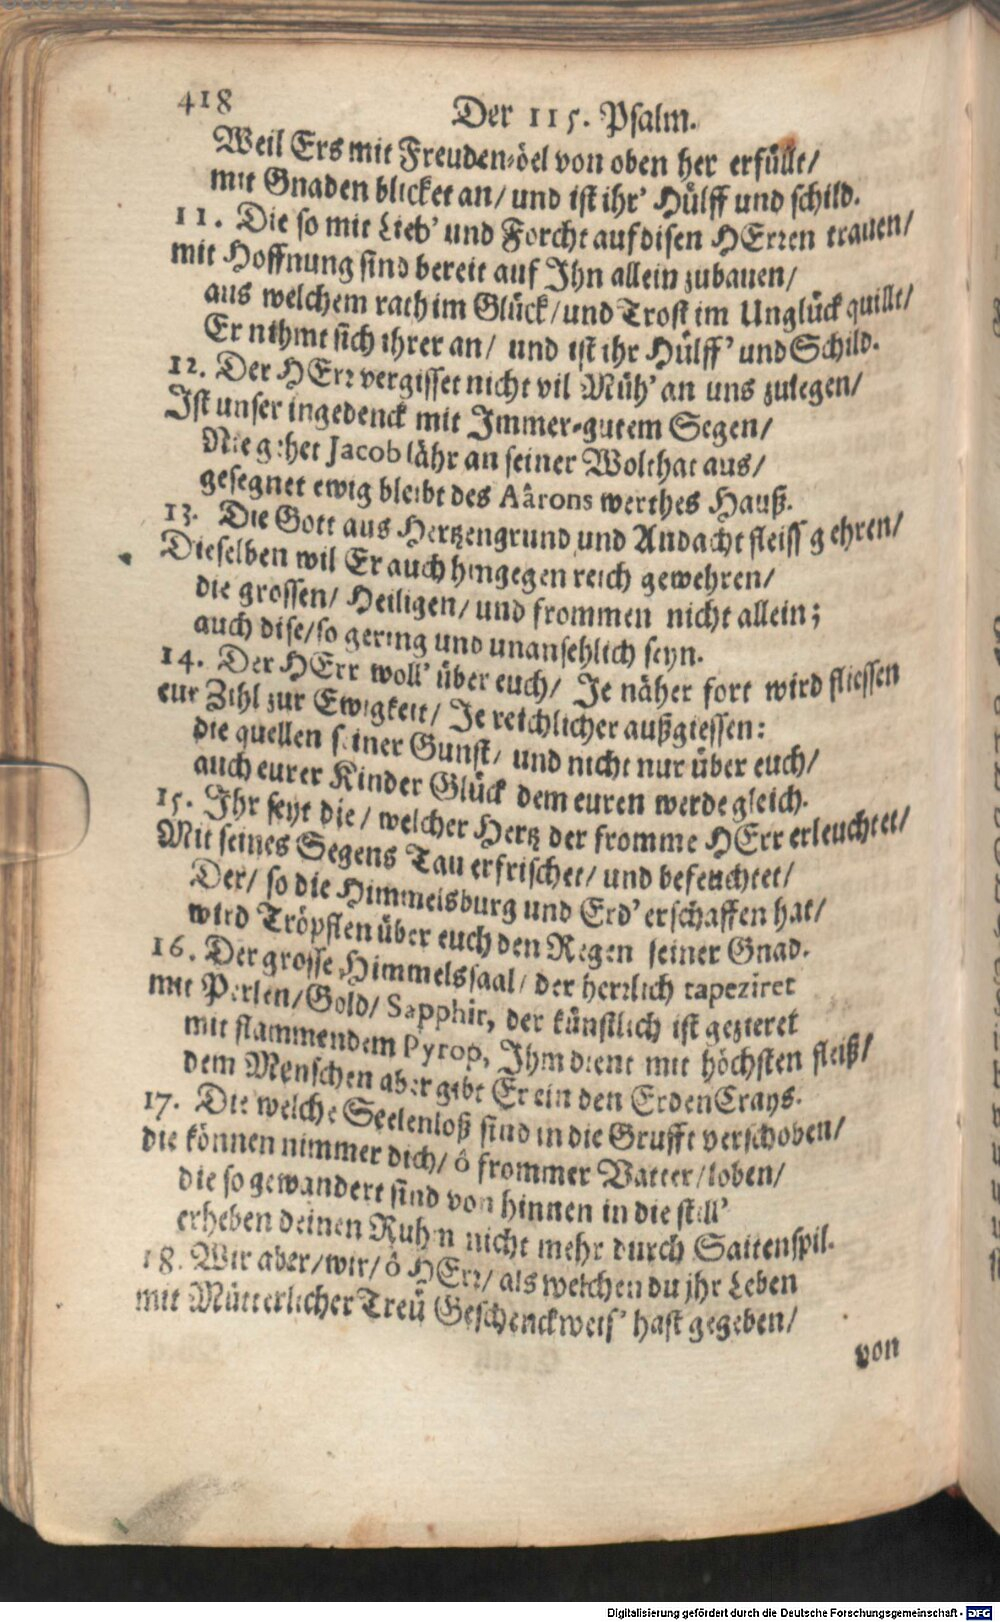 418
Der 115. Psalm.
Weil Ers mit Freuden-öel von oben her erfüllt/
mit Gnaden blicket an/ und ist ihr' Hülff und schild.
11. Die so mit Lieb' und Forcht auf disen HErren trauen/
mit Hoffnung sind bereit auf Ihn allein zubauen/
aus welchem rath im Glück/ und Trost im Unglück quillt/
Er nihmt sich ihrer an/ und ist ihr Hülff' und Schild.
12. Der HErr vergisset nicht vil Müh' an uns zulegen/
Ist unser ingedenck mit Immer-gutem Segen/
Nie gehet Jacob lähr an seiner Wolthat aus/
gesegnet ewig bleibt des Aârons werthes Hauß.
13. Die Gott aus Hertzengrund und Andacht fleiss gehren/
Dieselben wil Er auch hingegen reich gewehren/
die grossen/ Heiligen/ und frommen nicht allein;
auch dise/ so gering und unansehlich seyn.
14. Der HErr woll' über euch/ Je näher fort wird fliessen
eur Zihl zur Ewigkeit/ Je reichlicher außgiessen:
die quellen seiner Gunst/ und nicht nur über euch/
auch eurer Kinder Glück dem euren werde gleich.
15. Ihr seyt die/ welcher Hertz der fromme HErr erleuchtet/
Mit seines Segens Tau erfrischet/ und befeuchtet/
Der/ so die Himmelsburg und Erd' erschaffen hat/
wird Tröpflen über euch den Regen seiner Gnad.
16. Der grosse Himmelssaal/ der herrlich tapeziret
mit Perlen/ Gold/ Sapphir, der künstlich ist gezieret
mit flammendem Pyrop, Ihm dient mit höchsten fleiß/
dem Menschen aber gibt Er ein den ErdenCrays.
17. Die welche Seelenloß sind in die Grufft verschoben/
die können nimmer dich/ ô frommer Vatter/ loben/
die so gewandert sind von hinnen in die still'
erheben deinen Ruhm nicht mehr durch Saitenspil.
18. Wir aber/ wir/ ô HErr/ als welchen du jhr Leben
mit Mütterlicher Treü Geschenckweis' hast gegeben/
von
Digitalisierung gefördert durch die Deutsche Forschungsgemeinschaft - DFG